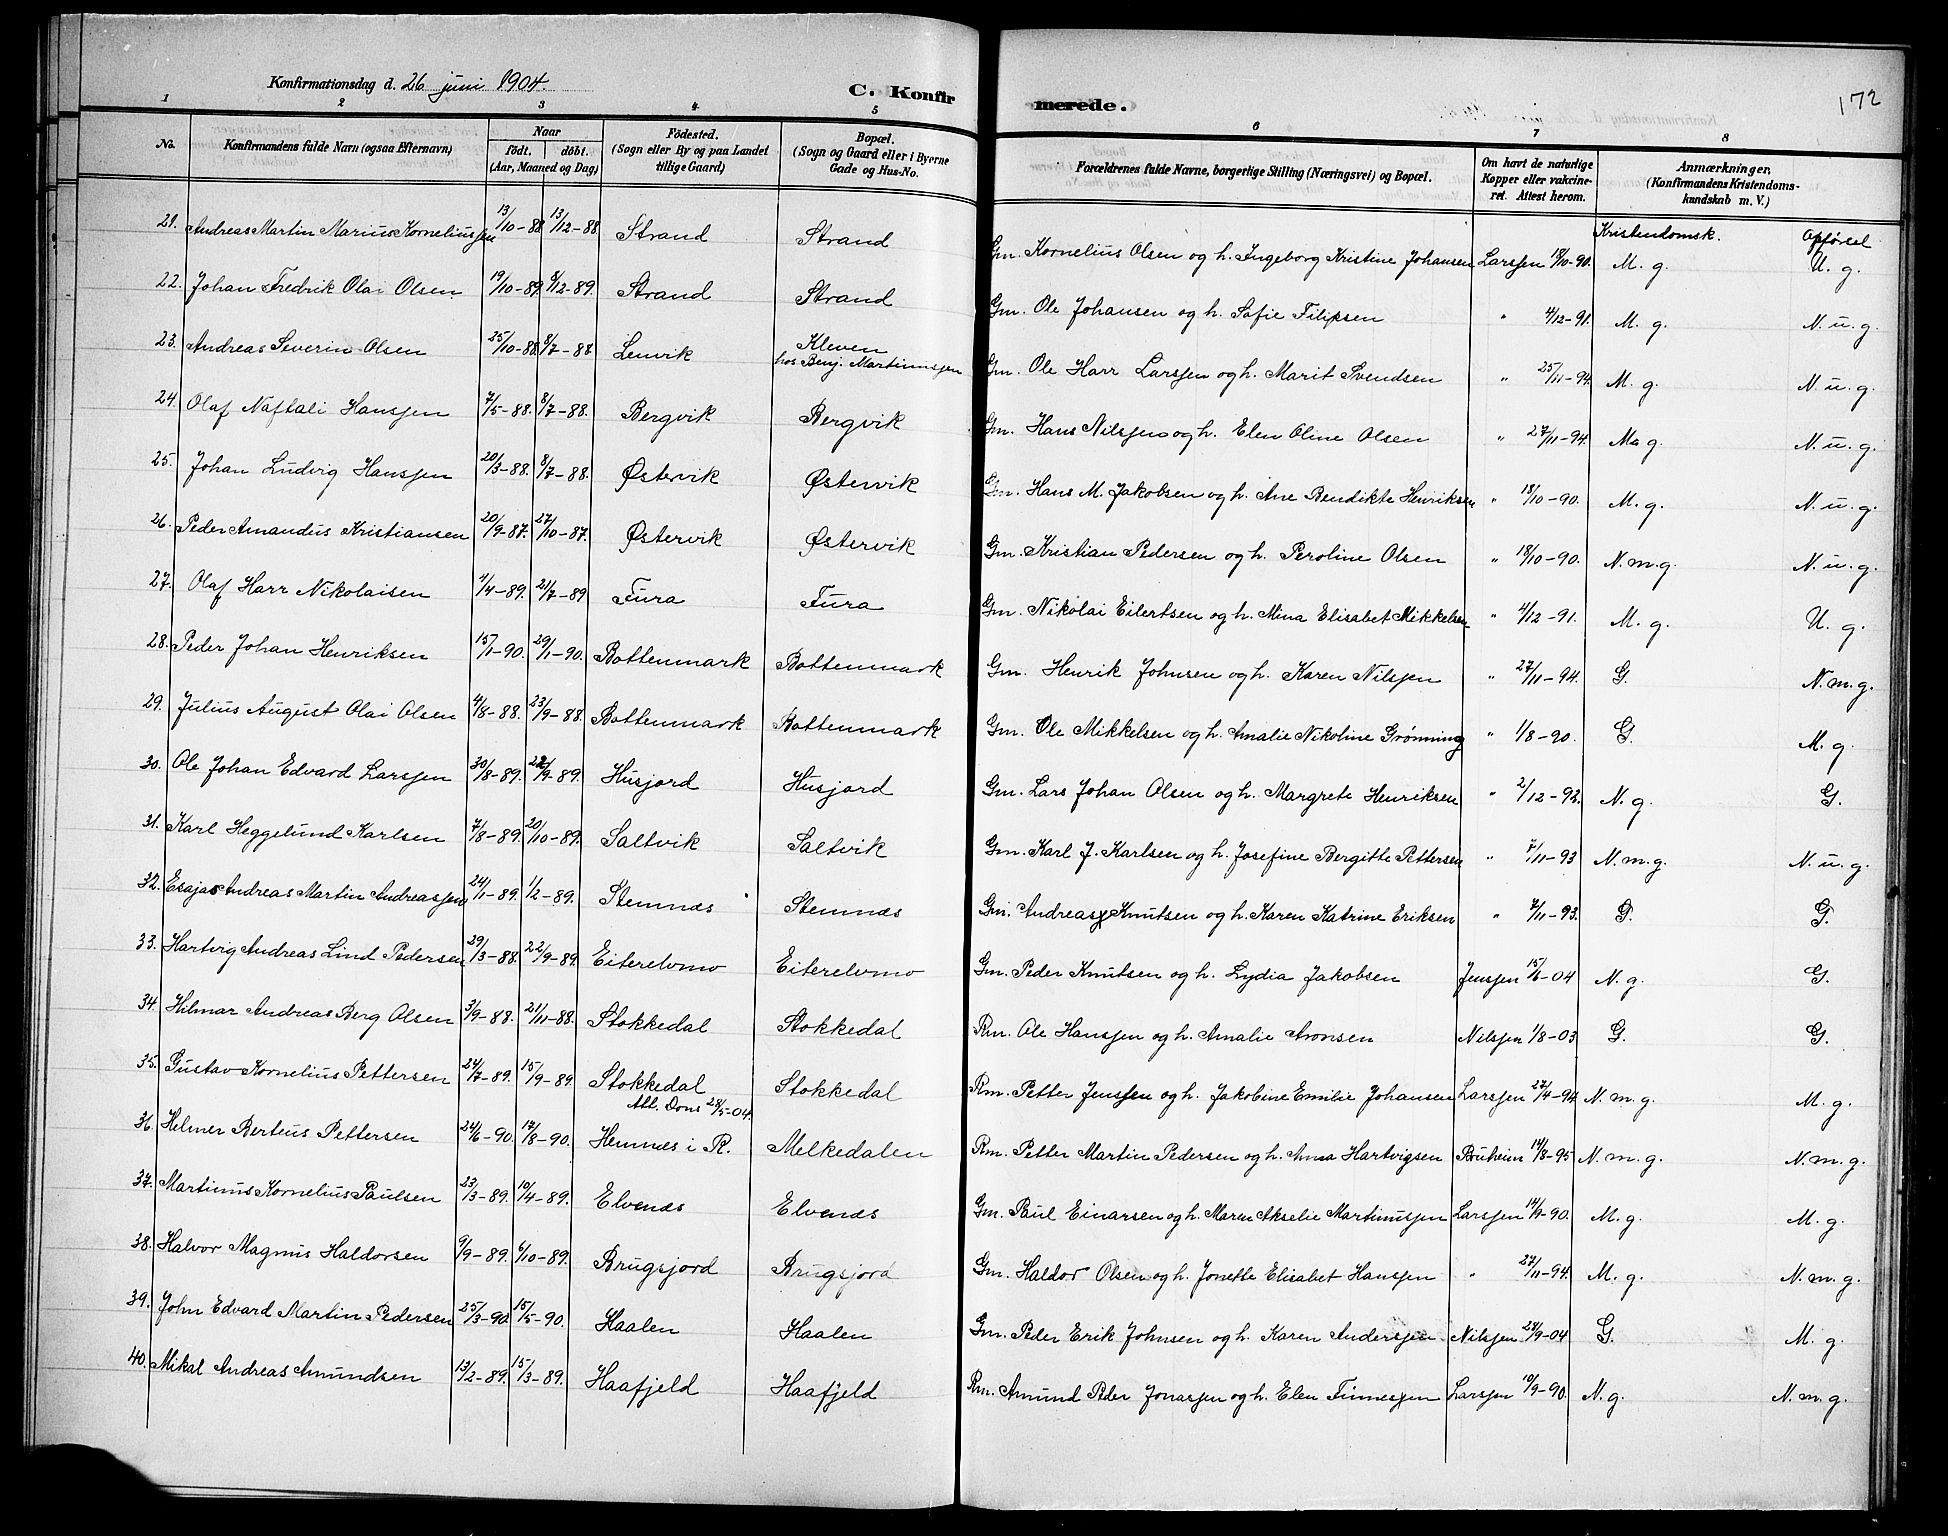 Konfirmationsdag d. 26 juni 1904.
C. Konfirmerede.
172
1 2 3 4 5 6 7 8
No. | Konfirmandens fulde Navn (ogsaa Efternavn) | Naar födt. döbt. (Aar, Maaned og Dag) | Födested. (Sogn eller By og paa Landet tillige Gaard) | Bopæl. (Sogn og Gaard eller i Byerne Gade og Hus-No. | Forældrenes fulde Navne, borgerlige Stilling (Næringsvei) og Bopæl. | Om havt de naturlige Kopper eller vakcineret. Attest herom. | Anmærkninger. (Konfirmandens Kristendomskundskab m. V.)
Kristendomsk. Opførsel
21. Andreas Martin Marius Korneliussen 13/10-88 13/12-88. Strand Strand Gm. Kornelius Olsen og h. Ingeborg Kristine Johansen Larssen 18/10-90. M. g. U. g.
22. Johan Fredrik Olai Olsen 19/10-89 8/12-89. Strand Strand Gm. Ole Johansen og h. Sofie Filipsen " 4/12-91. M. g. N. u. g.
23. Andreas Severin Olsen 25/10-88 8/7-88 Lenvik Kleven
hos Benj. Martinussen Gm. Ole Harr Larssen og h. Marit Svendsen " 25/11-94 M. g. N. u. g.
24. Olaf Naftali Hanssen 7/5-88. 8/7-88. Bergvik Bergvik Gm. Hans Nilssen og h. Elen Oline Olsen " 27/11-94. M g. N. u. g.
25. Johan Ludvig Hanssen 20/3-88. 8/7-88. Østervik Østervik Gm. Hans M. Jakobsen og h. Ane Bendikte Henriksen " 18/10-90. M. g. N. u. g.
26. Peder Amandus Kristiansen 20/9-87. 27/10-87. Østervik Østervik Gm. Kristian Pedersen og h. Peroline Olsen " 18/10-90. N. m. g. N. u. g.
27. Olaf Harr Nikolaisen 4/4-89. 21/7-89 Fura Fura Gm. Nikolai Eilertsen og h. Mina Elisabet Mikkelsen " 4/12-91. M. g. U. g.
28. Peder Johan Henriksen 15/1-90. 29/1-90. Bottenmark Bottenmark Gm. Henrik Johnsen og h. Karen Nilssen " 27/11-94. G. N. m. g.
29. Julius August Olai Olsen 4/8-88. 23/9-88. Bottenmark Bottenmark Gm. Ole Mikkelsen og h. Amalie Nikoline Grønning " 1/8-90. G. M. g.
30. Ole Johan Edvard Larssen 30/8-89. 22/9-89. Husjord Husjord Gm. Lars Johan Olsen og h. Margrete Henriksen " 2/12-92. N. g. G.
31. Karl Heggelund Karlsen 7/8-89. 20/10-89. Saltvik Saltvik Gm. Karl J. Karlsen og h. Josefine Bergitte Pettersen " 7/11-93 N. m. g. N. u. g.
32. Esajas Andreas Martin Andreassen 24/1-89. 1/2-89. Stemnæs Stemnæs Gm. Andreas Knutsen og h. Karen Katrine Eriksen " 7/11-93. G. G.
33. Hartvig Andreas Lind Pedersen 29/3-88. 22/9-89. Eiterelvmo Eiterelvmo Gm. Peder Knutsen og h. Lydia Jakobsen Jenssen 15/6-04 N. g. G.
34. Hilmar Andreas Berg Olsen 3/9-88. 21/11-88. Stokkedal Stokkedal Rm. Ole Hanssen og h. Amalie Aronsen Nilssen 1/8-03 G. G.
35. Gustav Kornelius Pettersen 24/7-89. 15/9-89. Stokkedal Stokkedal Rm. Petter Jenssen og h. Jakobine Emilie Johansen Larssen 27/4-94. N. m. g. M. g.
Att. Dons 28/5-04.
36. Helmer Berteus Pettersen 24/6-90. 17/8-90. Hemnes i R. Melkedalen Rm. Petter Martin Pedersen og h. Anna Hartvigsen Bruheim 14/8-95 N. m. g. N. m. g.
37. Martinus Kornelius Paulsen 23/3-89. 10/4-89. Elvenæs Elvenæs Gm. Paul Einarsen og h. Maren Akselie Martinussen Larssen 14/9-90. M. g. M. g.
38. Halvor Magnus Haldorsen 9/9-89. 6/10-89. Brugsjord Brugsjord Gm. Haldor Olsen og h. Jonette Elisabet Hanssen " 27/11-94. M. g. N. m. g.
39. John Edvard Martin Pedersen 25/3-90. 15/5-90. Haalen Haalen Gm. Peder Erik Johnsen og h. Karen Anderssen Nilssen 28/9-04 G. M. g.
40. Mikal Andreas Amundsen 13/2-89. 15/3-89. Haafjeld Haafjeld Rm. Amund Peder Jonassen og h. Elen Finnessen Larssen 10/9-90. N. g. N. m. g.